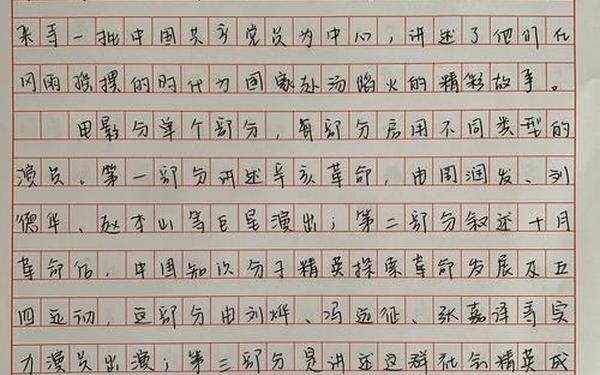 东等一批中国共产党员为中心,讲述了他们在
风雨飘摇的时代为国家赴汤蹈火的精彩故事。
电影分单个部分,每部分启用不同类型的
演员。第一部分讲述辛亥革命,由周润发、刘
德华、赵本山等巨星演出;第二部分叙述十月
革命后,中国知识分子精英探索革命发展及五
四运动,这部分由刘烨、冯远征、张嘉译等实
力演员出演;第三部分是讲述这群社会精英成